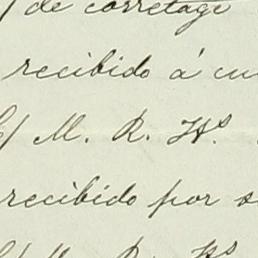 / de corretage
recibido á cu
C/ M. R. Hs.
recibido por s
C/ M. R. Hs